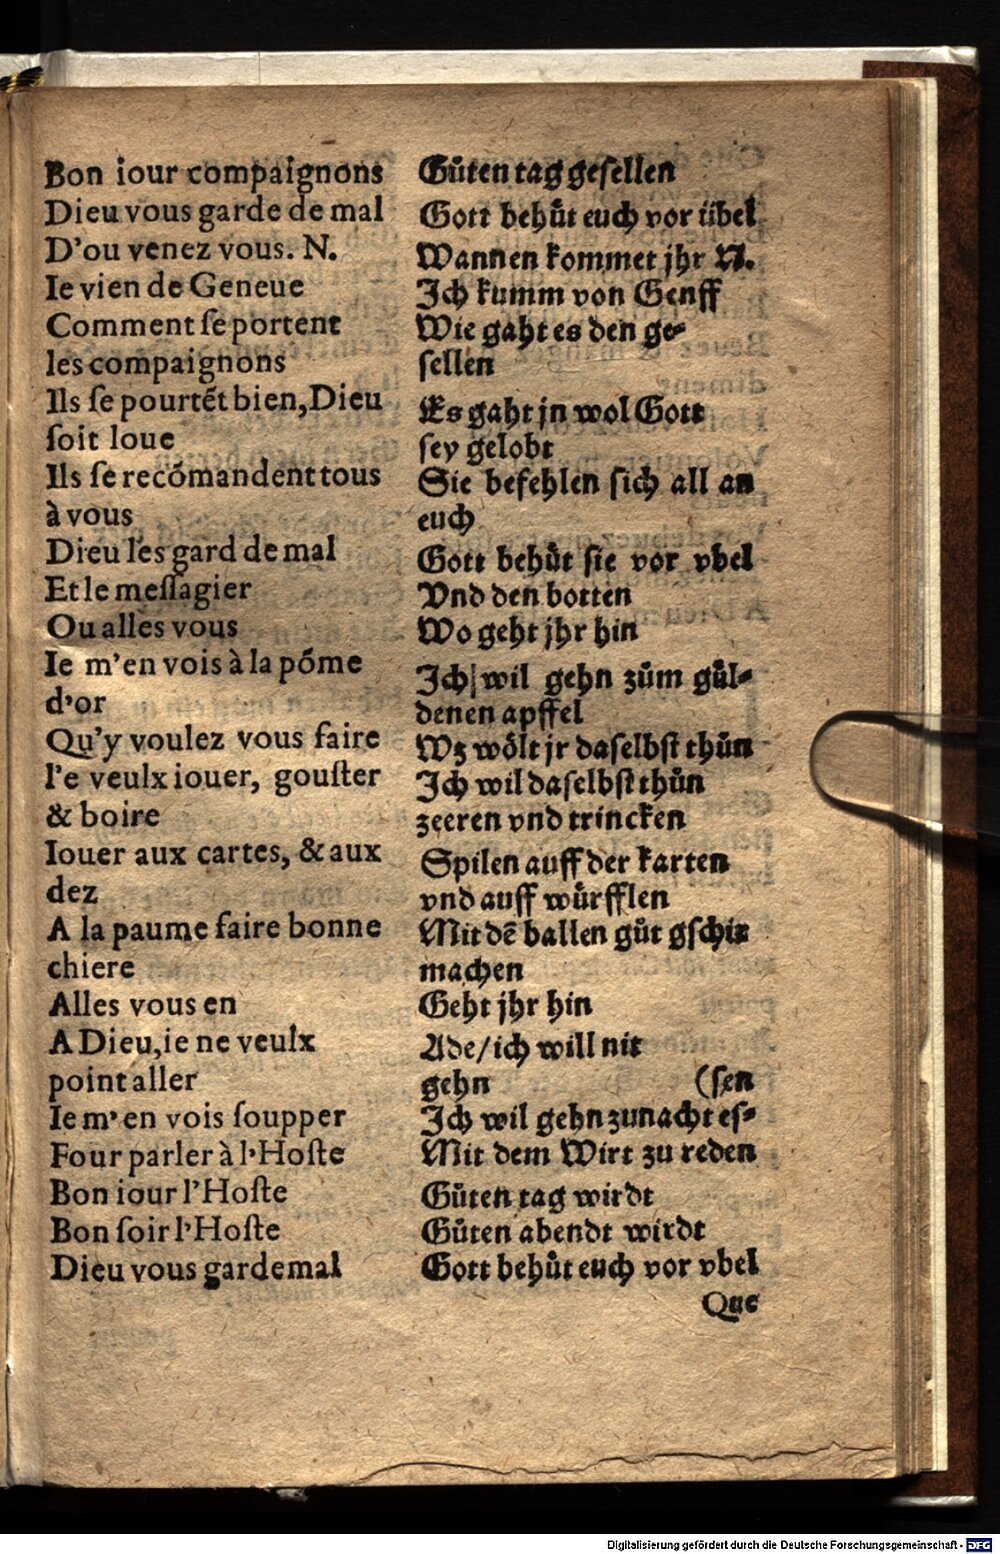 Bon iour compaignons
Dieu vous garde de mal
D'ou venez vous. N.
Ie vien de Geneue
Comment ſe portent
les compaignons
Ils ſe pourtẽt bien, Dieu
ſoit loue
Ils ſe recõmandent tous
à vous
Dieu les gard de mal
Et le meſſagier
Ou alles vous
Ie m'en vois à la põme
d'or
Qu'y voulez vous faire
I'e veulx iouer, gouſter
& boire
Iouer aux cartes, & aux
dez
A la paume faire bonne
chiere
Alles vous en
A Dieu, ie ne veulx
point aller
Ie m'en vois ſoupper
Four parler à l'Hoſte
Bon iour l'Hoſte
Bon ſoir l'Hoſte
Dieu vous gardemal
Gůten tag geſellen
Gott behůt euch vor übel
Wannen kommet jhr N.
Ich kumm von Genff
Wie gaht es den ge⸗
ſellen
Es gaht jn wol Gott
ſey gelobt
Sie befehlen ſich all an
euch
Gott behůt ſie vor vbel
Vnd den botten
Wo geht jhr hin
Ich wil gehn zům gůl⸗
denen apffel
Wz wölt jr daſelbſt thůn
Ich wil daſelbſt thůn
zeeren vnd trincken
Spilen auff der karten
vnd auff würfflen
Mit dẽ ballen gůt gſchir
machen
Geht jhr hin
Ade/ich will nit
gehn (ſen
Ich wil gehn zunacht eſ⸗
Mit dem Wirt zu reden
Gůten tag wirdt
Gůten abendt wirdt
Gott behůt euch vor vbel
Que
Digitalisierung gefördert durch die Deutsche Forschungsgemeinschaft - DFG